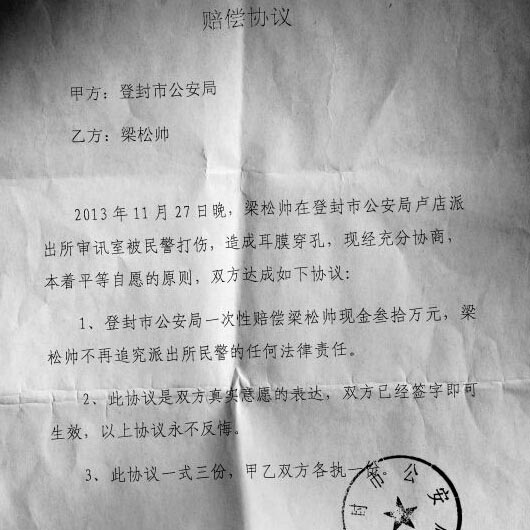 赔偿协议
甲方：登封市公安局
乙方：梁松帅
2013年11月27日晚，梁松帅在登封市公安局卢店派
出所审讯室被民警打伤，造成耳膜穿孔，现经充分协商，
本着平等自愿的原则，双方达成如下协议：
1、登封市公安局一次性赔偿梁松帅现金叁拾万元，梁
松帅不再追究派出所民警的任何法律责任。
2、此协议是双方真实意愿的表达，双方已经签字即可
生效，以上协议永不反悔。
3、此协议一式三份，甲乙双方各执一份。
封市公安局